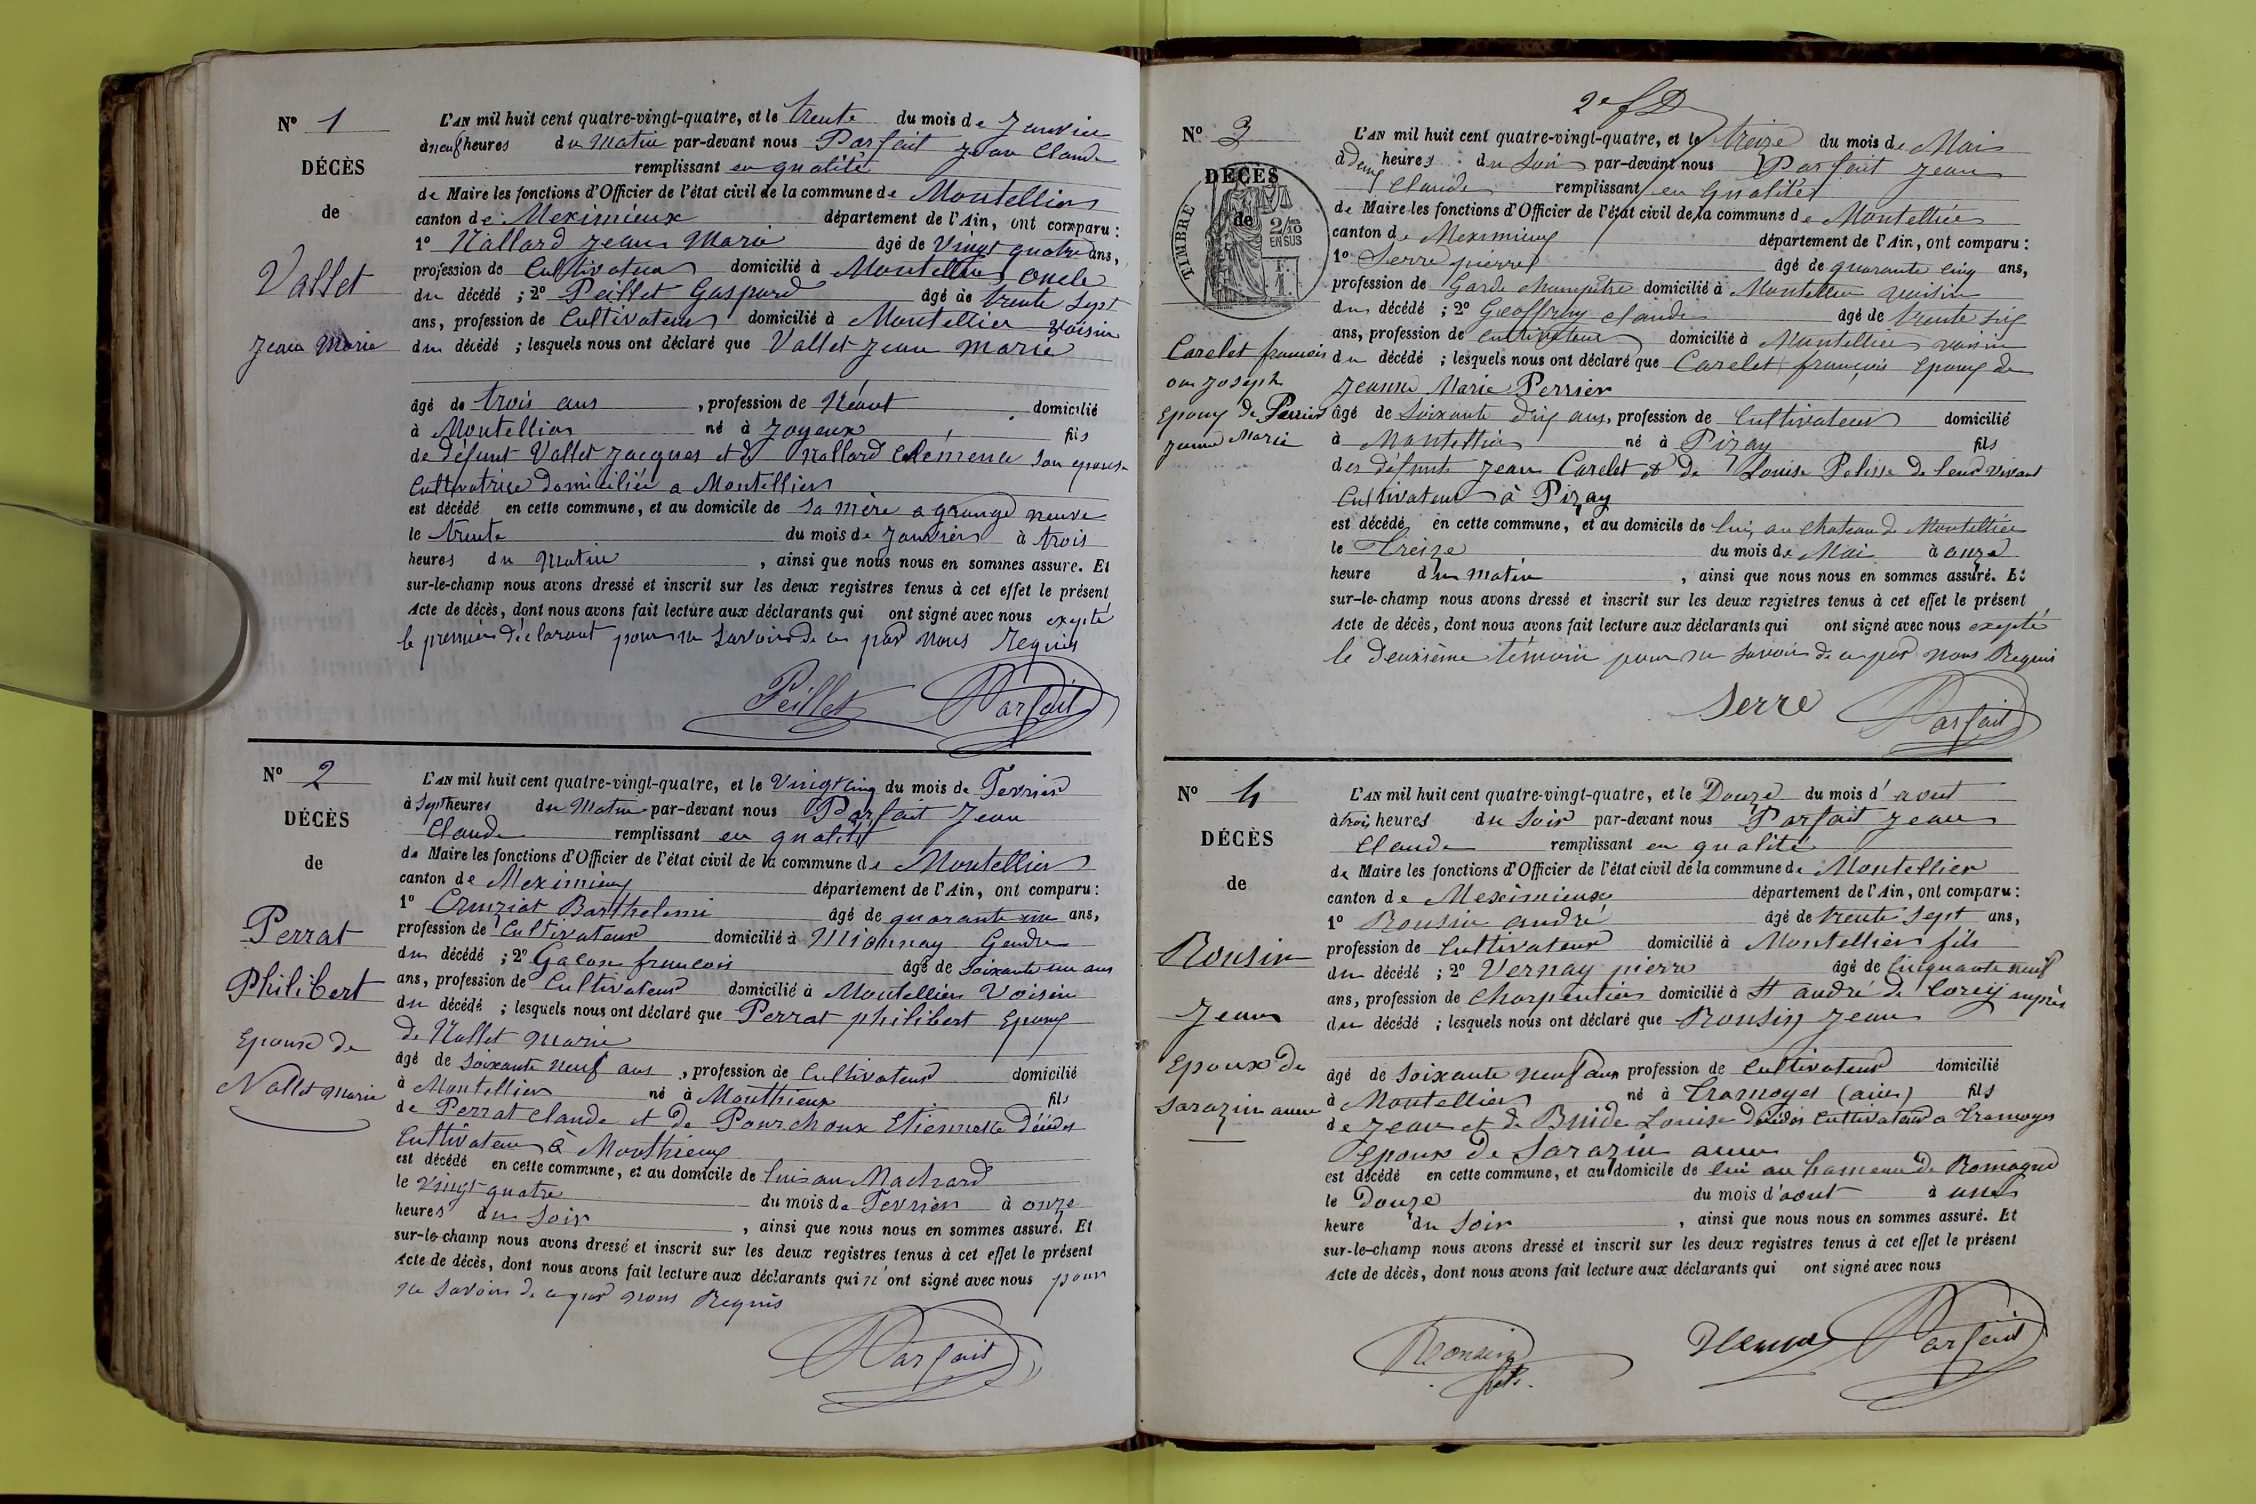 N° 1
DÉCÈS
de
Vallet
Jean Marie
L'AN mil huit cent quatre-vingt-quatre, et le trente du mois de Janvier
à neuf heures du Matin par-devant nous Parfait Jean Claude
remplissant en qualité
de Maire les fonctions d'Officier de l'état civil de la commune de Montellier
canton de Meximieux département de l'Ain, ont comparu :
1° Nallard Jean Marie âgé de Vingt quatre ans,
profession de Cultivateur domicilié à Montellier oncle
du décédé ; 2° Peillet Gaspard âgé de trente sept
ans, profession de Cultivateur domicilié à Montellier Voisin
du décédé ; lesquels nous ont déclaré que Vallet Jean Marie
âgé de trois ans , profession de Néant domicilié
à Montellier né à Joyeux fils
de défunt Vallet Jacques et de Nallard Clémence son épouse
Cultivatrice domiciliée a Montellier
est décédé en cette commune, et au domicile de sa mère a grange neuve
le trente du mois de Janvier à trois
heures du Matin , ainsi que nous nous en sommes assuré. Et
sur-le-champ nous avons dressé et inscrit sur les deux registres tenus à cet effet le présent
Acte de décès, dont nous avons fait lecture aux déclarants qui ont signé avec nous excepté
le premier déclarant pour ne savoir de ce par nous Requis
Peillet Parfait
N° 2
DÉCÈS
de
Perrat
Philibert
Epoux de
Nallet Marie
L'AN mil huit cent quatre-vingt-quatre, et le Vingt cinq du mois de Fevrier
à sept heures du Matin par-devant nous Parfait Jean
Claude remplissant en qualité
de Maire les fonctions d'Officier de l'état civil de la commune de Montellier
canton de Meximieux département de l'Ain, ont comparu :
1° Cruziat Barthelemi âgé de quarante un ans,
profession de Cultivateur domicilié à Mionnay Gendre
du décédé ; 2° Galon francois âgé de soixante un ans
ans, profession de Cultivateur domicilié à Montellier Voisin
du décédé ; lesquels nous ont déclaré que Perrat philibert Epoux
de Nallet Marie
âgé de soixante neuf ans , profession de Cultivateur domicilié
à Montellier né à Monthieux fils
de Perrat Claude et de Pourchoux Etiennette décédés
Cultivateurs à Monthieux
est décédé en cette commune, et au domicile de lui au Machard
le Vingt quatre du mois de Fevrier à onze
heures du Soir , ainsi que nous nous en sommes assuré. Et
sur-le-champ nous avons dressé et inscrit sur les deux registres tenus à cet effet le présent
Acte de décès, dont nous avons fait lecture aux déclarants qui n'ont signé avec nous pour
ne savoir de ce par nous Requis
Parfait
2e f D
N° 3
DÉCÈS
de
TIMBRE
2/10
EN SUS
Carelet francois
ou Joseph
epoux de Perrier
Jeanne Marie
L'AN mil huit cent quatre-vingt-quatre, et le treize du mois de Mai
à deux heures du Soir par-devant nous Parfait Jean
Claude remplissant en qualité
de Maire les fonctions d'Officier de l'état civil de la commune de Montellier
canton de Meximieux département de l'Ain, ont comparu :
1° Serre pierre âgé de quarante cinq ans,
profession de Garde champêtre domicilié à Montellier voisin
du décédé ; 2° Geoffray claude âgé de trente six
ans, profession de cultivateur domicilié à Montellier voisin
du décédé ; lesquels nous ont déclaré que Carelet françois Epoux de
Jeanne Marie Perrier
âgé de soixante dix ans, profession de Cultivateur domicilié
à Montellier né à Pizay fils
des défunts Jean Carelet & de Louise Polisse de leur vivant
Cultivateurs à Pizay
est décédé en cette commune, et au domicile de lui, au chateau de Montellier
le Treize du mois de Mai à onze
heure du matin , ainsi que nous nous en sommes assuré. Et
sur-le-champ nous avons dressé et inscrit sur les deux registres tenus à cet effet le présent
Acte de décès, dont nous avons fait lecture aux déclarants qui ont signé avec nous excepté
le deuxième témoin pour ne savoir de ce par nous Requis
Serre Parfait
N° 4
DÉCÈS
de
Ronsin
Jean
Epoux de
Sarazin anne
L'AN mil huit cent quatre-vingt-quatre, et le Douze du mois d'aout
à trois heures du Soir par-devant nous Parfait Jean
Claude remplissant en qualité
de Maire les fonctions d'Officier de l'état civil de la commune de Montellier
canton de Meximieux département de l'Ain, ont comparu :
1° Ronsin andré âgé de trente sept ans,
profession de Cultivateur domicilié à Montellier fils
du décédé ; 2° Vernay pierre âgé de Cinquante neuf
ans, profession de Charpentier domicilié à St andré de Corcy
du décédé ; lesquels nous ont déclaré que Ronsin Jean
âgé de soixante neuf ans profession de Cultivateur domicilié
à Montellier né à Tramoyes (ain) fils
de Jean et de Buide Louise décédés Cultivateurs a Tramoyes
Epoux de Sarazin anne
est décédé en cette commune, et au domicile de lui au hameau de Romagne
le Douze du mois d'aout à une
heure du Soir , ainsi que nous nous en sommes assuré. Et
sur-le-champ nous avons dressé et inscrit sur les deux registres tenus à cet effet le présent
Acte de décès, dont nous avons fait lecture aux déclarants qui ont signé avec nous
Ronsin fils Parfait